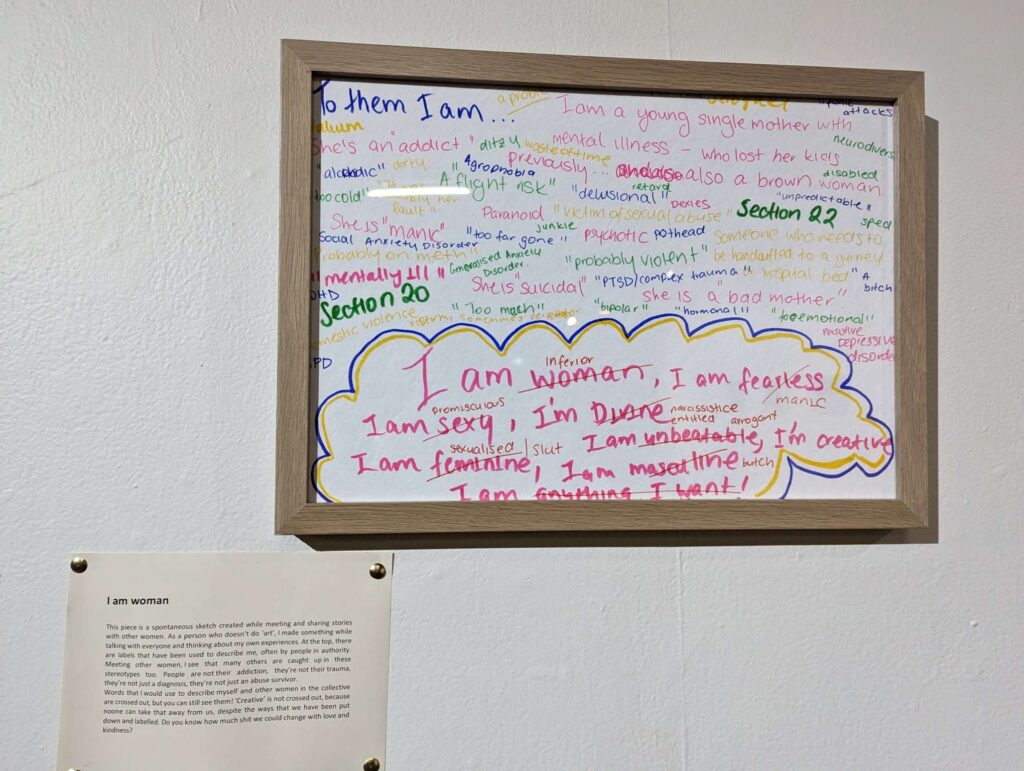 To them I am...
a probl
I am a young single mother with
"panic attacks
alium
She's "an addict"
ditzy
waste of time
mental illness - who lost her kids
neurodivers
"alcoholic"
dirty
"Agrophobia
previously... and also also a brown woman.
disabled
too cold"
"A flight risk"
"delusional"
retard
"unpredictable"
bly her fault"
Paranoid
"victim of sexual abuse"
Dexies
Section 22
sped
She is "manic"
"too far gone"
junkie
psychotic
pothead
someone who needs to
Social Anxiety Disorder
probably on meth"
Generalised Anxiety Disorder.
"probably violent"
be handcuffed to a gurney
"mentally Ill"
She is "suicidal"
"PTSD/complex trauma"
hospital bed"
A bitch
DHD
Section 20
"Too much"
"bipolar"
She is a "bad mother"
"hormonal"
"too emotional"
mestic violence victim, sometimes perpetrator
Persistive Depressive disorder
PD
inferior
I am woman, I am fearless
promiscuous
manic
I am sexy, I'm Divine
narcissistice
entitled arrogant
sexualised / slut
I am unbeatable, I'm creative
I am feminine, I am masculine
butch
I am anything I want!
I am woman
This piece is a spontaneous sketch created while meeting and sharing stories
with other women. As a person who doesn't do 'art', I made something while
talking with everyone and thinking about my own experiences. At the top, there
are labels that have been used to describe me, often by people in authority.
Meeting other women, I see that many others are caught up in these
stereotypes too. People are not their addiction, they're not their trauma,
they're not just a diagnosis, they're not just an abuse survivor.
Words that I would use to describe myself and other women in the collective
are crossed out, but you can still see them! 'Creative' is not crossed out, because
noone can take that away from us, despite the ways that we have been put
down and labelled. Do you know how much shit we could change with love and
kindness?